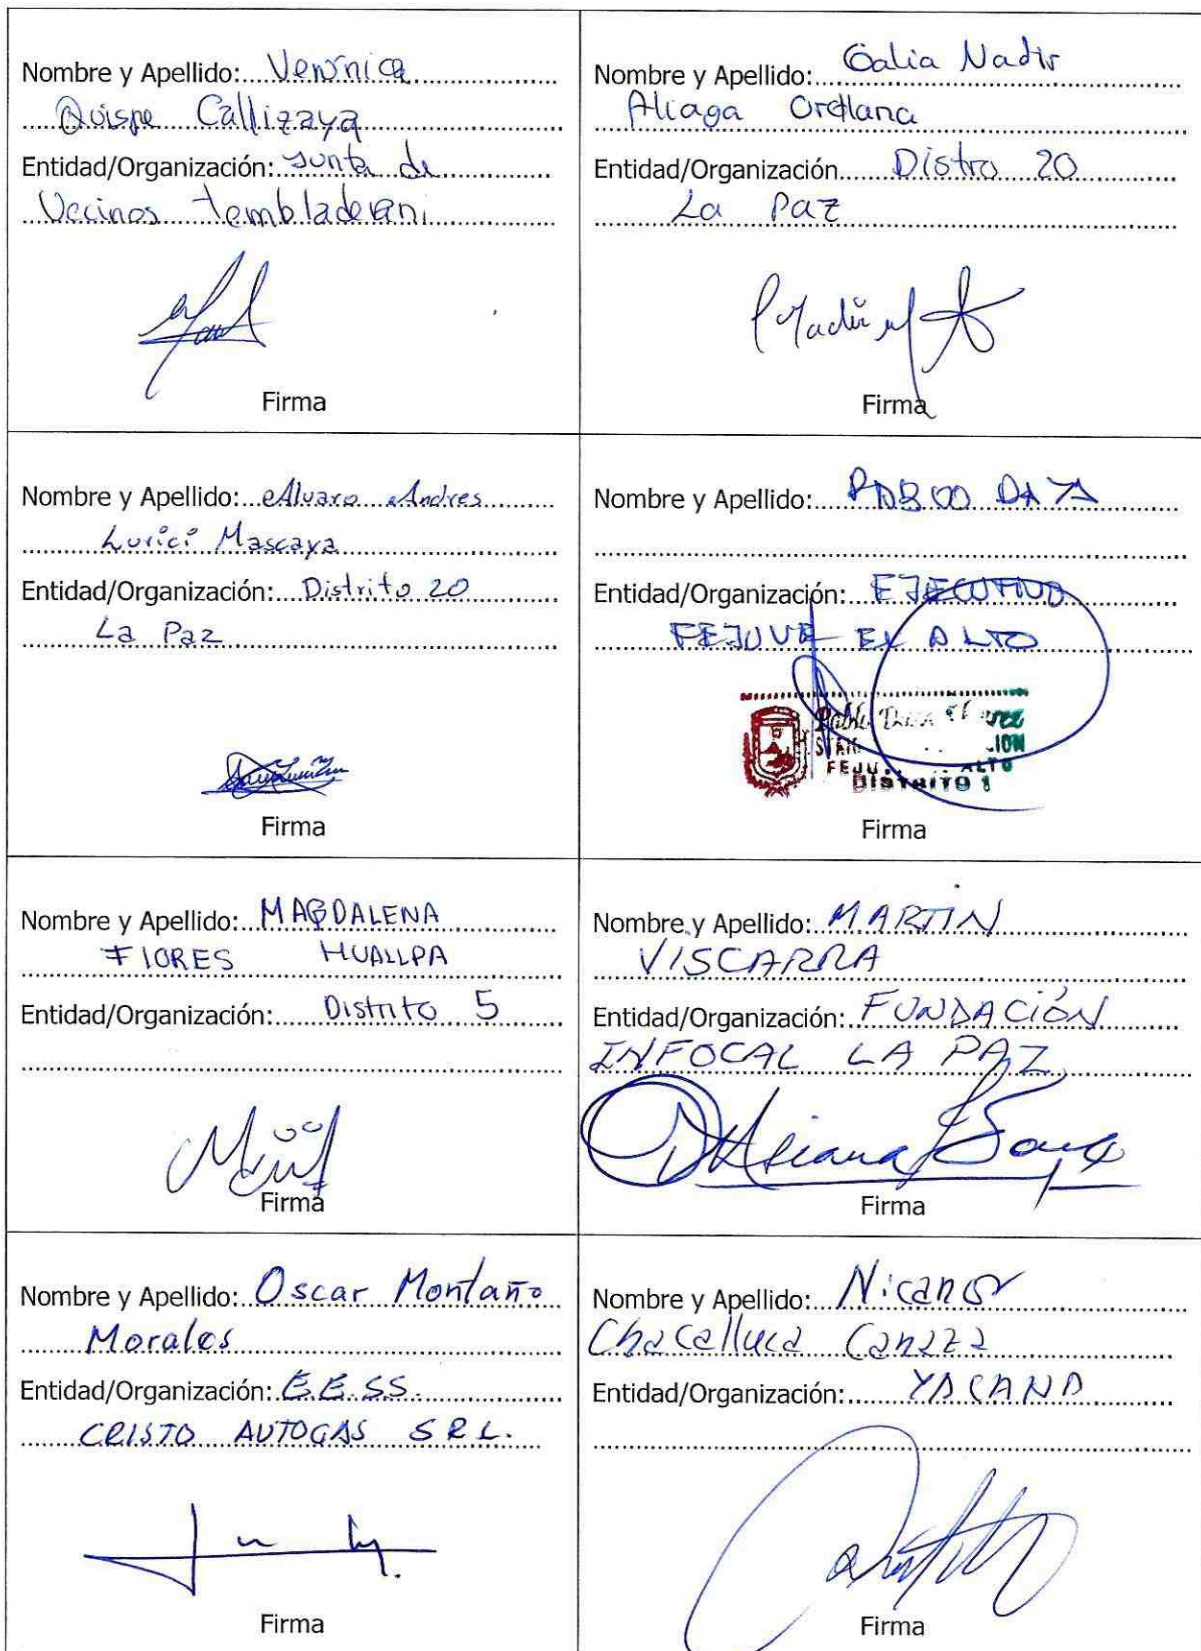 Nombre y Apellido: Verónica
Quispe Callizaya
Entidad/Organización: Junta de
Vecinos Tembladerani
Firma
Nombre y Apellido: Galia Nadir
Aliaga Orellana
Entidad/Organización Distro 20
La Paz
Firma
Nombre y Apellido: Alvaro Andres
Lurici Mascaya
Entidad/Organización: Distrito 20
La Paz
Firma
Nombre y Apellido: PABLO
Entidad/Organización: EJECUTIVO
FEJUVE EL ALTO
Pablo
ALTO
DISTRITO 1
Firma
Nombre y Apellido: MAGDALENA
FLORES HUALLPA
Entidad/Organización: Distrito 5
Firma
Nombre y Apellido: MARTIN
VISCARRA
Entidad/Organización: FUNDACIÓN
INFOCAL LA PAZ
Firma
Nombre y Apellido: Oscar Montaño
Morales
Entidad/Organización: E.E.SS.
CRISTO AUTOGAS SRL.
Firma
Nombre y Apellido: Nicanor
Chacalluca Canaza
Entidad/Organización: YACANA
Firma